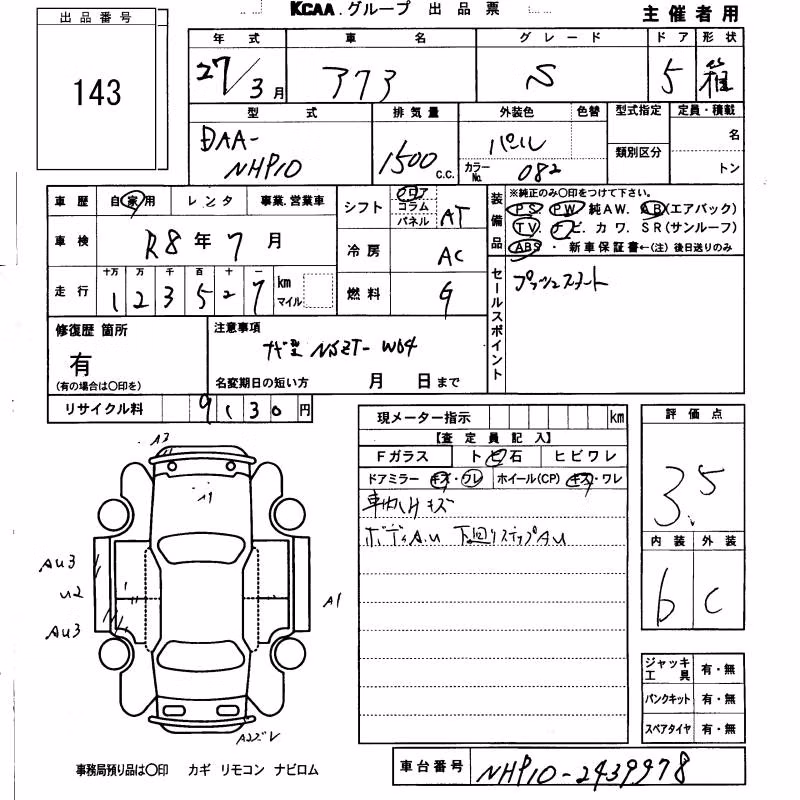 出品番号
143
KCAA.グループ 出品票
主催者用
年式 車名 グレード ドア 形状
27/3月 アクア S 5 箱
型式 排気量 外装色 色替 型式指定 定員・積載
DAA-NHP10 1500 C.C. パール 名
カラーNo. 082 類別区分 トン
車歴 自家用 レンタ 事業.営業車
シフト フロア コラム パネル AT
装備品 ※純正のみ〇印をつけて下さい。
PS. PW 純AW. AB(エアバック)
TV. ナビ. カワ. SR(サンルーフ)
ABS ・ 新車保証書←(注) 後日送りのみ
車検 R8年7月
冷房 AC
走行 十万 万 千 百 十 一
123527 km マイル
燃料 G
セールスポイント
プッシュスタート
修復歴 箇所
有
(有の場合は〇印を)
注意事項
ナビ型 NSZT-W64
名変期日の短い方 月 日まで
リサイクル料 9130円
現メーター指示 km
【査定員記入】
Fガラス トビ石 ヒビワレ
ドアミラー キズ・ワレ ホイール(CP) キズ・ワレ
車内小キズ
ボディA.U 下回りステップAU
評価点
3.5
内装 外装
b C
A2
A1
AU3
U2
AU3
A1
ジャッキ工具 有・無
パンクキット 有・無
スペアタイヤ 有・無
事務局預り品は〇印 カギ リモコン ナビロム
車台番号 NHP10-2439978